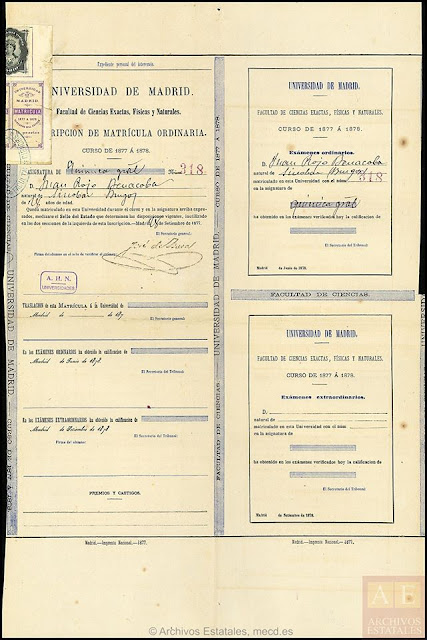 Expediente personal del interesado.
UNIVERSIDAD DE MADRID.
MATRÍCULA
Facultad de Ciencias Exactas, Físicas y Naturales.
INSCRIPCION DE MATRÍCULA ORDINARIA.
CURSO DE 1877 Á 1878.
ASIGNATURA DE Química gral Núm. 318.
D. Juan Rojo Benacoba
natural de Burgos
Queda matriculado en esta Universidad durante el curso y en la asignatura arriba expresados, mediante el Sello del Estado que determinan las disposiciones vigentes, inutilizado en las dos secciones de la izquierda de esta Inscripcion.—Madrid de Setiembre de 1877.
El Secretario general,
A. H. N.
UNIVERSIDADES
TRASLACION de esta MATRÍCULA á la Universidad de
Madrid de de 187
El Secretario general
En los EXÁMENES ORDINARIOS ha obtenido la calificacion de
Madrid de Junio de 1878.
El Secretario del Tribunal:
En los EXÁMENES EXTRAORDINARIOS ha obtenido la calificacion de
Madrid de 1878
Firma del alumno:
El Secretario del Tribunal:
PREMIOS Y CASTIGOS.
Madrid.—Imprenta Nacional.—1877.
UNIVERSIDAD DE MADRID. CURSO DE 1877 Á 1878.
FACULTAD DE CIENCIAS. UNIVERSIDAD DE MADRID. CURSO DE 1877 Á 1878.
UNIVERSIDAD DE MADRID.
FACULTAD DE CIENCIAS EXACTAS, FÍSICAS Y NATURALES.
CURSO DE 1877 Á 1878.
Exámenes ordinarios.
D. Juan Rojo Benacoba
natural de Burgos
matriculado en esta Universidad con el núm. 318
en la asignatura de
Química gral
ha obtenido en los exámenes verificados hoy la calificacion de
El Secretario del Tribunal:
Madrid de Junio de 1878.
FACULTAD DE CIENCIAS.
UNIVERSIDAD DE MADRID.
FACULTAD DE CIENCIAS EXACTAS, FÍSICAS Y NATURALES.
CURSO DE 1877 Á 1878.
Exámenes extraordinarios.
D.
natural de
matriculado en esta Universidad con el núm.
en la asignatura de
ha obtenido en los exámenes verificados hoy la calificacion de
El Secretario del Tribunal:
Madrid de Setiembre de 1878.
Madrid.—Imprenta Nacional.—1877.
AE
ARCHIVOS
ESTATALES
© Archivos Estatales, mecd.es